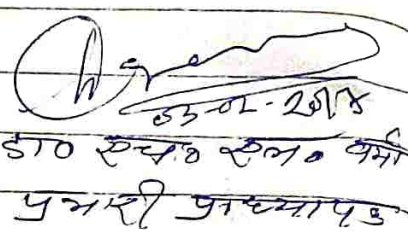 03-02-2018
डा० एच० एल० वर्मा
प्रभारी प्राध्यापक